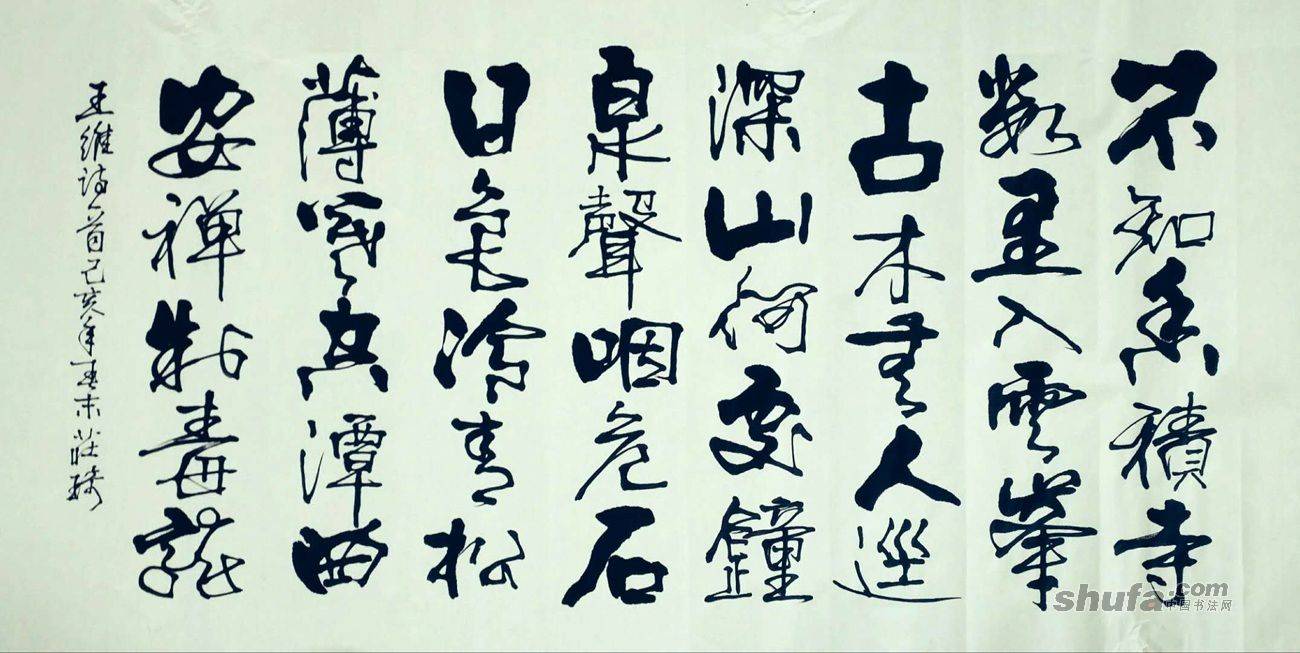 不知香積寺
數里入雲峯
古木無人逕
深山何處鐘
泉聲咽危石
日色冷青松
薄暮空潭曲
安禪制毒龍
王維詩一首己亥年春末莊
shufa.com
中国书法网